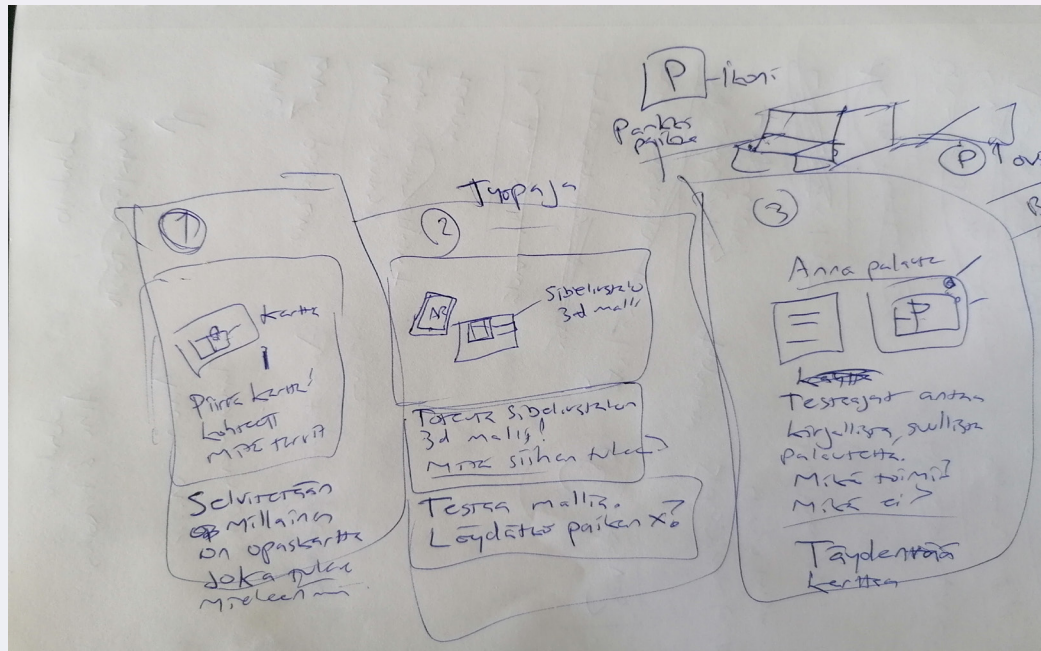 P - ikoni
Parkki
paikka
P
Työpaja
1
kartta
Piirrä kartta!
kohteet
mitä tarvit
Selvitetään
millainen
on opaskartta
Joka tulee
mieleen
2
AR
Sibeliustalo
3d malli
Toteuta Sibeliustalon
3d malli!
Mitä siihen tulee?
Testaa mallia.
Löydätkö paikan X?
3
Anna palaute
P
Testaajat antaa
kirjallista, suullista
palautetta.
Mikä toimi?
Mikä ei?
Täydentää
karttaa